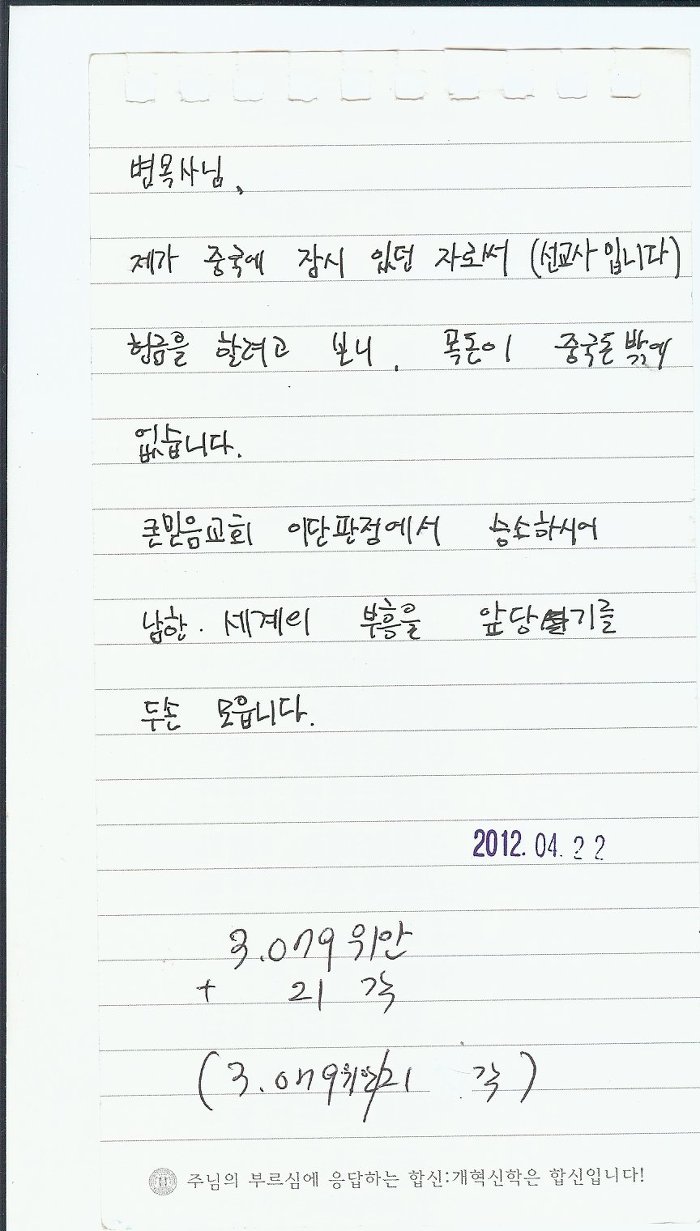 변목사님,
제가 중국에 잠시 있던 자로써 (선교사입니다)
헌금을 할려고 보니, 목돈이 중국돈밖에
없습니다.
큰믿음교회 이단판정에서 승소하시어
남한. 세계의 부흥을 앞당기를
두손 모읍니다.
2012.04.22
3.079위안
+ 21 각
(3.079위안/21 각)
주님의 부르심에 응답하는 합신:개혁신학은 합신입니다!